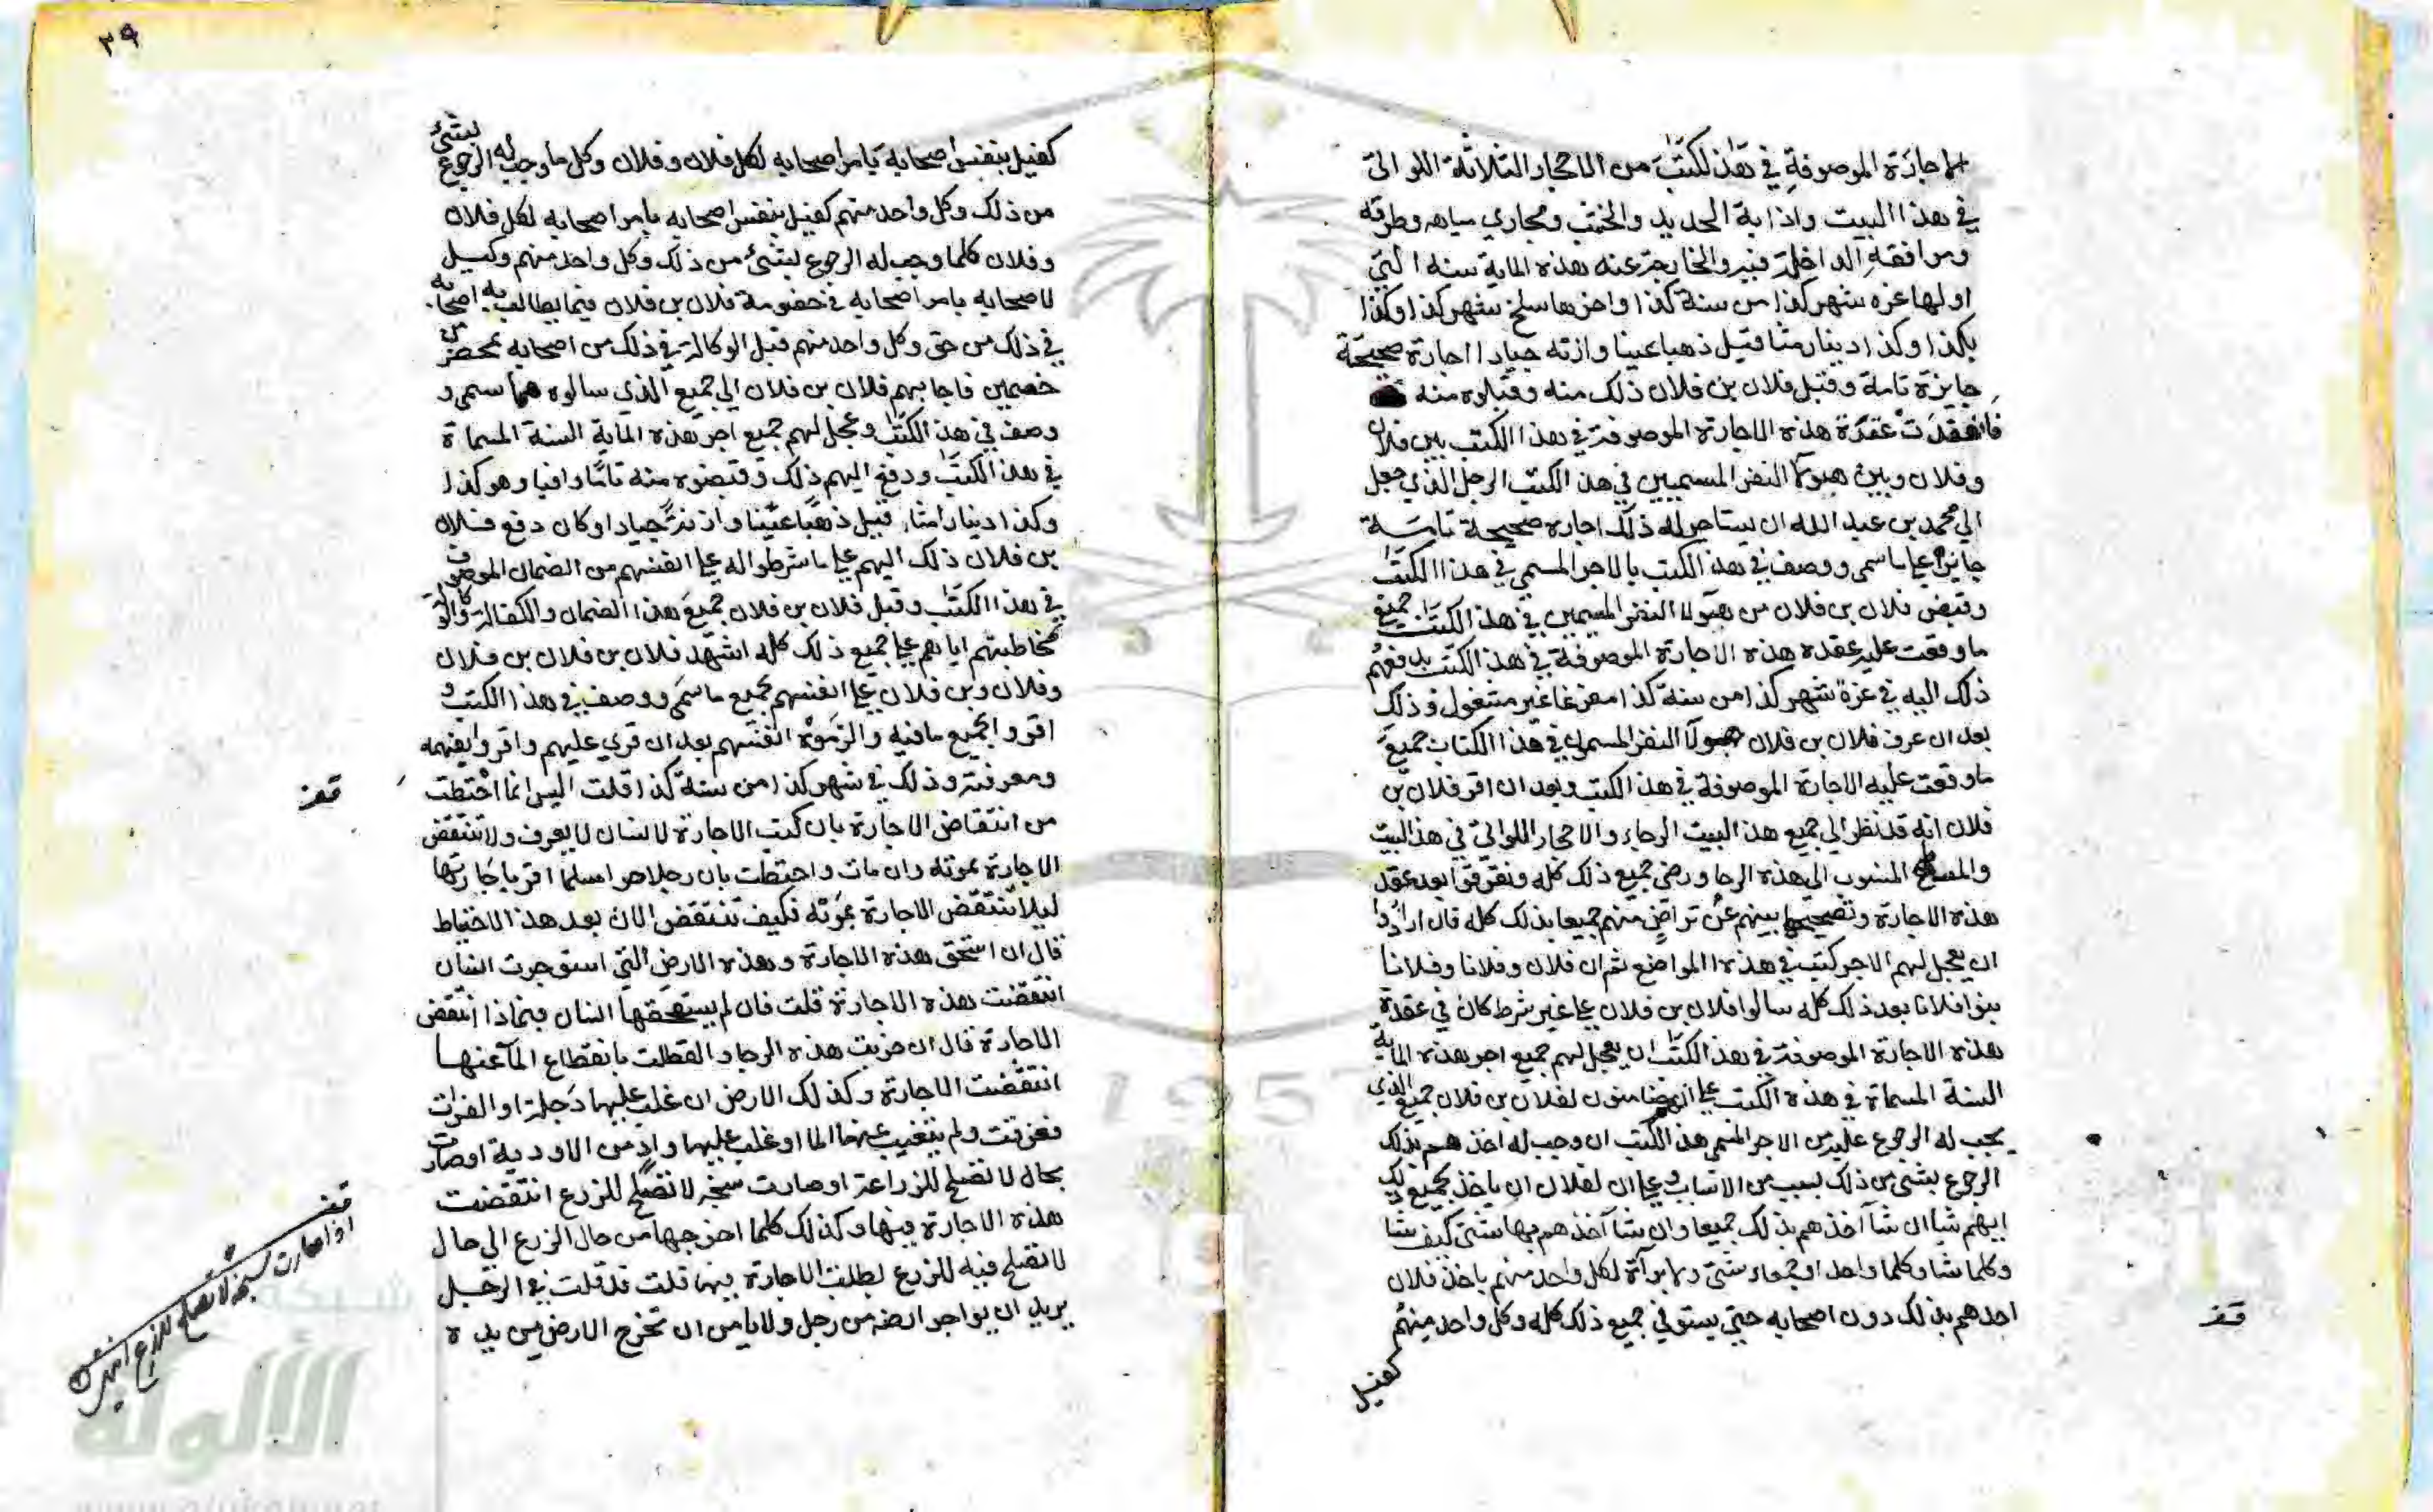 الاجارة الموصوفة في هذا لكتب من الاحجار الثلاثة اللواتي
في هذا البيت واذابة الحديد والخشب ومجاري مياهه وطرقه
ومرافقه الداخلة فيه والخارجة عنه هذه الماية سنه التي
اولها غره شهر كذا من سنة كذا واخرها سلخ شهر كذا وكذا
بكذا وكذا دينار مثاقيل ذهبا عينا وازنه جيادا اجارة صحيحة
جايزة تامة وقبل فلان بن فلان ذلك منه وقبلوه منه
فانعقدت عقدة هذه الاجارة الموصوفة في هذا الكتب بين فلان
وفلان وبين هولا النفر المسميين في هذ الكتب الرجل الذي جعل
الي محمد بن عبد الله ان يستاجر له ذلك اجاره صحيحة تامة
جايزة علي ما سمي ووصف في هذ الكتب بالاجر المسمي في هذا الكتب
وقبض فلان بن فلان من هولا النفر المسمين في هذ الكتب جميع
ما وقعت عليه عقده هذه الاجارة الموصوفة في هذ الكتب بدفعهم
ذلك اليه في غرة شهر كذا من سنة كذا مفرغا غير مشغول وذلك
بعد ان عرف فلان بن فلان هولا النفر المسمون في هذا الكتاب جميع
ما وقعت عليه الاجارة الموصوفة في هذ الكتب وبعد ان اقر فلان بن
فلان انه قد نظر الي جميع هذ البيت الرحاء والاحجار اللواتي في هذ البيت
المنسوب الي هذه الرحا ورضي جميع ذلك كله وتفرقوا بعد عقد
هذه الاجارة وتصحيحها بينهم عن تراض منهم جميعا بذلك كله قال ارادوا
ان يعجل لهم الاجر كتب في هذه المواضع ثم ان فلان وفلانا وفلانا
بنوا فلانا بعد ذلك كله سالوا فلان بن فلان علي غير شرط كان في عقدة
هذه الاجارة الموصوفة في هذ الكتب ان يعجل لهم جميع اجر هذه الماية
السنة المسماة في هذه الكتب علي انهم ضامنون لفلان بن فلان جميع الذي
يجب له الرجوع عليه من الاجر المسمي هذ الكتب ان وجب له اخذهم بذلك
الرجوع بشئ من ذلك بسبب من الاسباب وعلي ان لفلان ان ياخذ بجميع ذلك
ايهم شا ان شا آخذهم بذلك جميعا وان شا آخذهم بها شتي كيف شا
وكلما شا وكلما واحدا وجمعاء شتي ولا برآة لكل واحد منهم باخذ فلان
احدهم بذلك دون اصحابه حتي يستوفي جميع ذلك كله وكل واحد منهم
كفيل
قف
٣٩
كفيل بنفس اصحابه بامر اصحابه لكل فلان وفلان وكل ما وجب له الرجوع بشئ
من ذلك وكل واحد منهم كفيل بنفس اصحابه بامر اصحابه لكل فلان
وفلان كلما وجب له الرجوع بشئ من ذلك وكل واحد منهم وكيل
لاصحابه بامر اصحابه في خصومة فلان بن فلان فيما يطالب به اصحابه
في ذلك من حق وكل واحد منهم قبل الوكالة في ذلك من اصحابه بمحضر من
خصمين فاجابهم فلان بن فلان الي جميع الذي سالوه مما سمي و
وصف في هذ الكتب وعجل لهم جميع اجر هذه الماية السنة المسماة
في هذ الكتب ودفع اليهم ذلك وقبضوه منه تاما وافيا وهو كذا
وكذا دينارا مثاقيل ذهبا عينا وازنة جيادا وكان دفع فلان
بن فلان ذلك اليهم علي ما شرطوا له علي انفسهم من الضمان الموصوف
في هذا الكتب وقبل فلان بن فلان جميع هذا الضمان والكفالة والوكالة
بمخاطبتهم اياهم علي جميع ذلك كله اشهد فلان بن فلان بن فلان
وفلان وبن فلان علي انفسهم بجميع ما سمي ووصف في هذا الكتب و
اقروا بجميع ما فيه والزموه انفسهم بعد ان قري عليهم واقروا بفهمه
ومعرفته وذلك في شهر كذا من سنة كذا قلت اليس انما احتطت
من انتقاض الاجارة بان كتب الاجارة لانسان لا يعرف ولا تنتقض
الاجارة بموته وان مات واحتطت بان رجلا حرا مسلما اقر باجارتها
ليلا تنتقض الاجارة بموته فكيف تنتقض الان بعد هذ الاحتياط
قال ان استحق هذه الاجارة وهذه الارض التي استوجرت انسان
انتقضت هذه الاجارة قلت فان لم يستحقها انسان فبماذا انتقض
الاجارة قال ان خربت هذه الرحا والقطلت بانقطاع المآ عنها
انتقضت الاجارة وكذلك الارض ان غلب عليها دجلة او الفرات
فغرقت ولم ينضب عنها الما او غلب عليها واد من الاودية او صارت
بحال لا تصلح للزراعة او صارت سبخه لا تصلح للزرع انتقضت
هذه الاجارة فيها وكذلك كلما اخرجها من حال الزرع الي حال
لا تصلح فيه للزرع بطلت الاجارة فيها قلت قد قلت في الرجل
يريد ان يواجر ارضه من رجل ولا يامن ان تخرج الارض من يده
قف
قف
اذا صارت سبخه لا تصلح للزرع